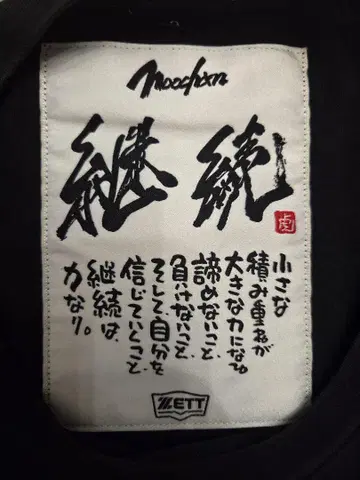 moochan
継続
虎
小さな
積み重ねが
大きな力になる。
諦めないこと、
負けないこと、
そして、自分を
信じていくこと、
継続は、
力なり。
ZETT